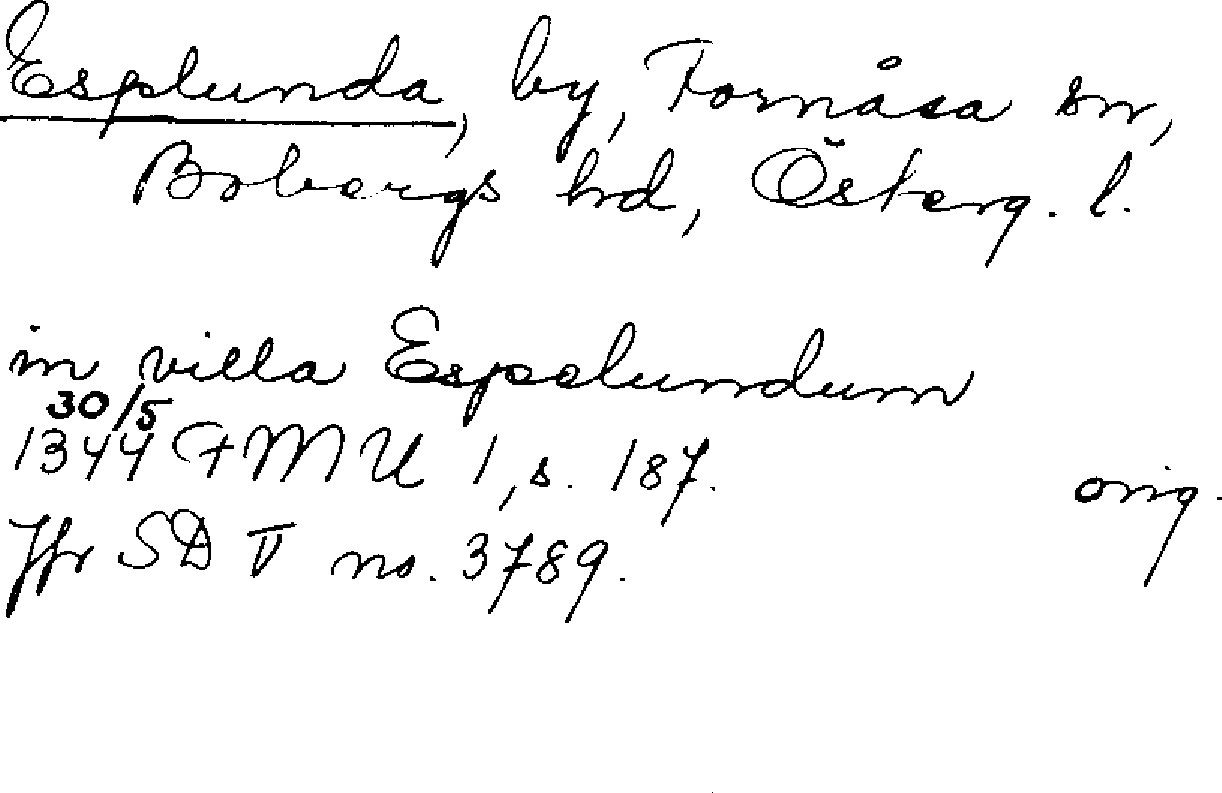 Esplunda, by, Fornåsa sn,
Bobergs hd, Österg. l.
in villa Espelundum
30/5
1344 FMU 1, s. 187. orig.
Jfr SD V no. 3789.